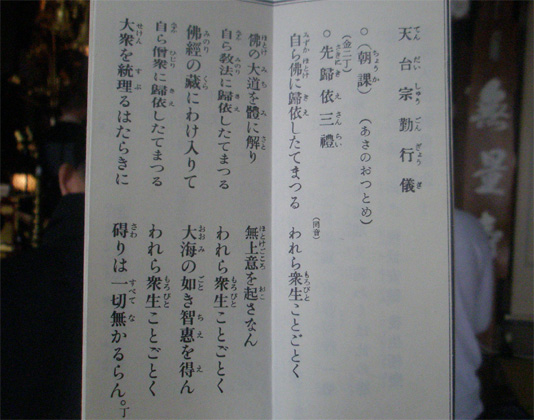 天台宗勤行儀
○(朝課) (あさのおつとめ)
(金二丁)
○先歸依三禮
自ら佛に歸依したてまつる われら衆生ことごとく
(同音)
佛の大道を體に解り 無上意を起さなん
自ら教法に歸依したてまつる われら衆生ことごとく
佛經の藏にわけ入りて 大海の如き智惠を得ん
自ら僧衆に歸依したてまつる われら衆生ことごとく
大衆を統理るはたらきに 碍りは一切無かるらん。丁
無量壽